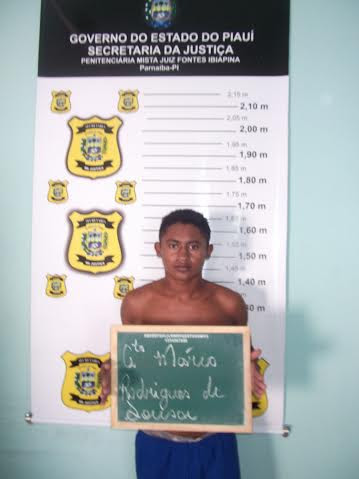 GOVERNO DO ESTADO DO PIAUÍ
SECRETARIA DA JUSTIÇA
PENITENCIÁRIA MISTA JUIZ FONTES IBIAPINA
Parnaíba-PI
2,15 m
2,10 m
2,05 m
2,00 m
1,95 m
1,90 m
1,85 m
1,80 m
1,75 m
1,70 m
1,65 m
1,60 m
1,55 m
1,50 m
1,45 m
1,40 m
Márco
Rodrigues de
Sousa